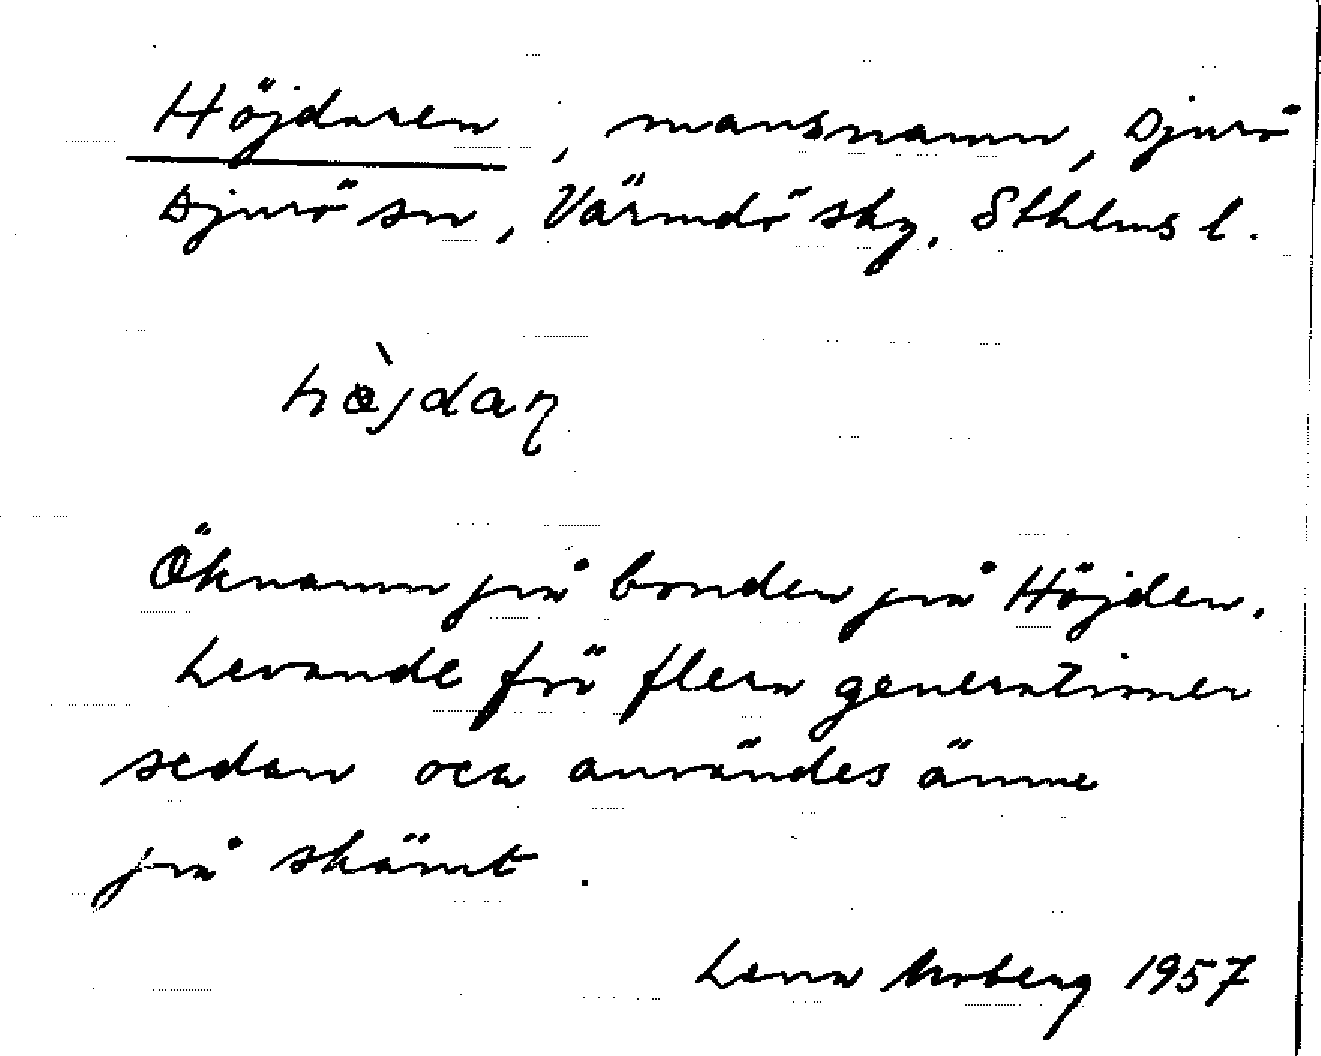 Höjdaren, mansnamn, Djurö
Djurö sn, Värmdö skg. Sthlms l.
hö̀jdaɳ
Öknamn på bonden på Höjden.
Levande för flera generationer
sedan och användes ännu
på skämt.
Lena Moberg 1957